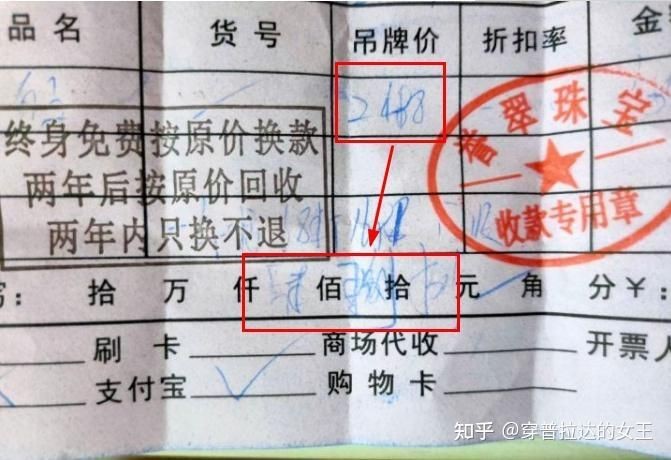 品名 货号 吊牌价 折扣率 金
誉翠珠宝
收款专用章
终身免费按原价换款
两年后按原价回收
两年内只换不退
写： 拾 万 仟 佰 拾 元 角 分￥：
刷卡 商场代收 开票人
支付宝 购物卡
知乎 @穿普拉达的女王